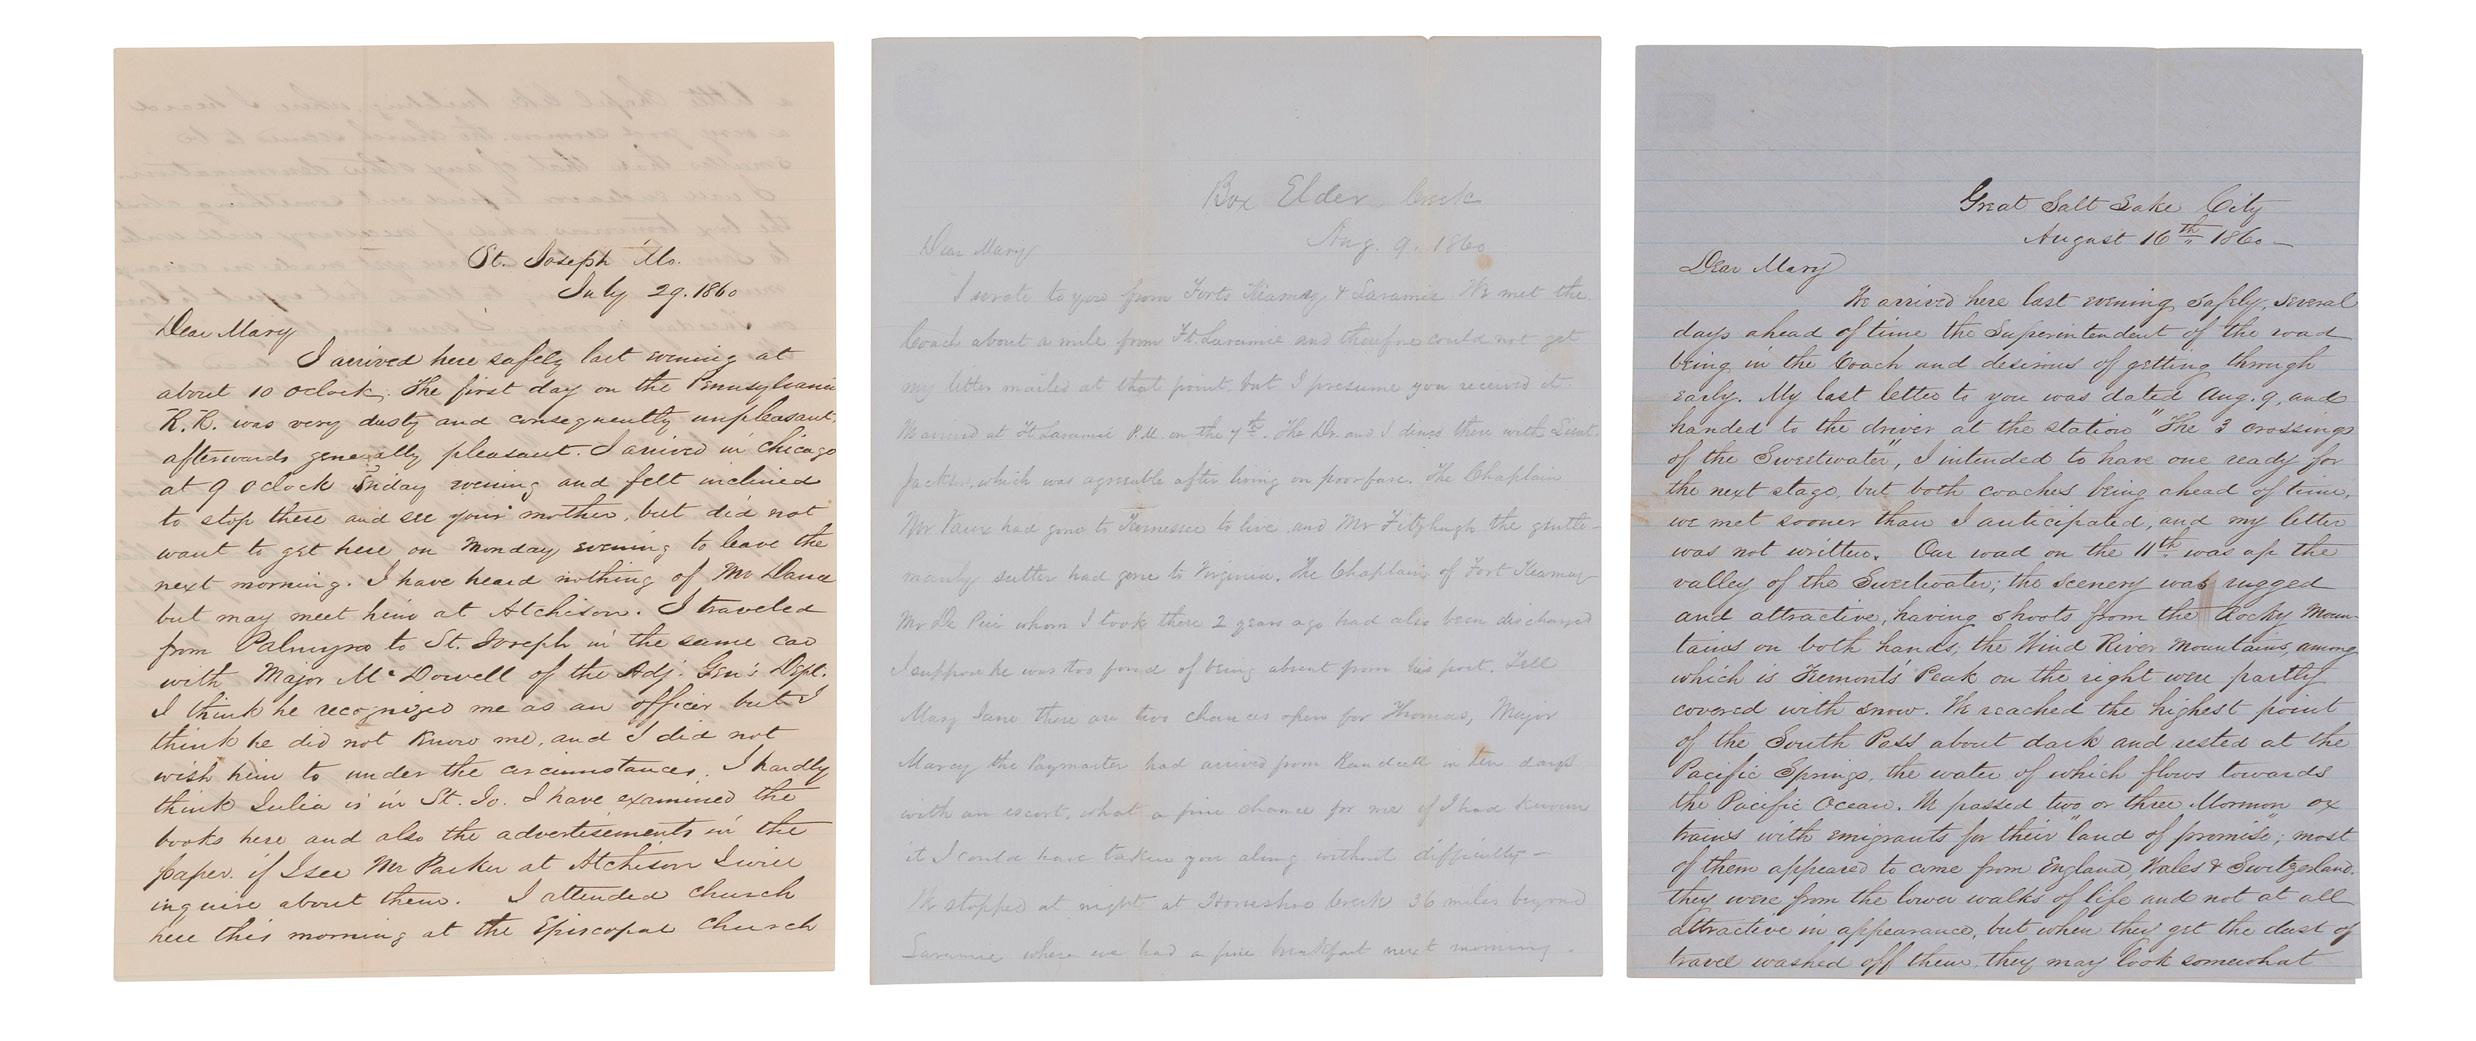 St. Joseph Mo.
July 29. 1860
Dear Mary
I arrived here safely last evening at
about 10 oclock. The first day on the Pennsylvania
R.R. was very dusty and consequently unpleasant,
afterwards generally pleasant. I arrived in Chicago
at 9 oclock Friday evening and felt inclined
to stop there and see your mother, but did not
want to get here on Monday evening to leave the
next morning. I have heard nothing of Mr Dana
but may meet him at Atchison. I traveled
from Palmyra to St. Joseph in the same car
with Major McDowell of the Adj. Gen's Dept.
I think he recognized me as an officer but I
think he did not know me, and I did not
wish him to under the circumstances. I hardly
think Julia is in St. Jo. I have examined the
books here and also the advertisements in the
paper. if I see Mr Parker at Atchison I will
inquire about them. I attended church
here this morning at the Episcopal Church
Box Elder Creek
Aug. 9. 1860
Dear Mary
I wrote to you from Forts Kearney & Laramie We met the
Coach about a mile from Ft. Laramie and therefore could not get
my letter mailed at that point but I presume you received it.
We arrived at Ft Laramie P.M. on the 7th. The Dr. and I dined there with Lieut.
Jackson, which was agreeable after living on poor fare. The Chaplain
Mr Vaux had gone to Tennessee to live and Mr Fitzhugh the gentle-
manly sutler had gone to Virginia. The Chaplain of Fort Kearney
Mr De Puis whom I took there 2 years ago had also been discharged
I suppose he was too fond of being absent from his post. Tell
Mary Jane there are two chances open for Thomas, Major
Marcy the Paymaster had arrived from Randall in ten days
with an escort, what a fine chance for me if I had known
it I could have taken you along without difficulty –
We stopped at night at Horseshoe Creek 36 miles beyond
Laramie where we had a fine breakfast next morning.
Great Salt Lake City
August 16th 1860 –
Dear Mary
We arrived here last evening safely, several
days ahead of time the Superintendent of the road
being in the Coach and desirous of getting through
early. My last letter to you was dated Aug. 9, and
handed to the driver at the station "The 3 crossings
of the Sweetwater", I intended to have one ready for
the next stage, but both coaches being ahead of time,
we met sooner than I anticipated, and my letter
was not written. Our road on the 11th was up the
valley of the Sweetwater; the scenery was rugged
and attractive, having shoots from the Rocky Moun-
tains on both hands, the Wind River Mountains, among
which is Fremonts' Peak on the right were partly
covered with snow. We reached the highest point
of the South Pass about dark and rested at the
Pacific Springs, the water of which flows towards
the Pacific Ocean. We passed two or three Mormon ox
trains with emigrants for their "land of promise"; most
of them appeared to come from England, Wales & Switzerland.
they were from the lower walks of life and not at all
attractive in appearance, but when they get the dust of
travel washed off them, they may look somewhat